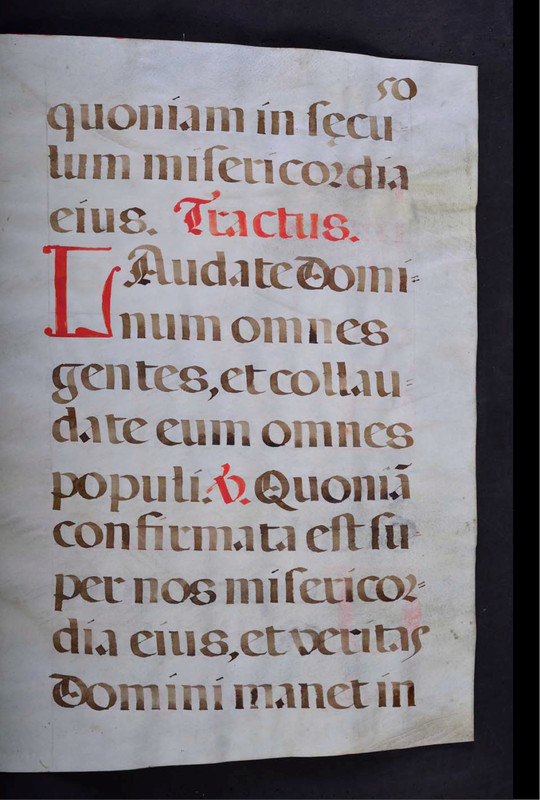 50
quoniam in ſęcu
lum miſericordia
eius. Tractus.
LAudate Domi⹀
num omnes
gentes, et collau⹀
date eum omnes
populi. ℣. Quoniã
confirmata eſt ſu
per nos miſericor⹀
dia eius, et veritas
Domini manet in